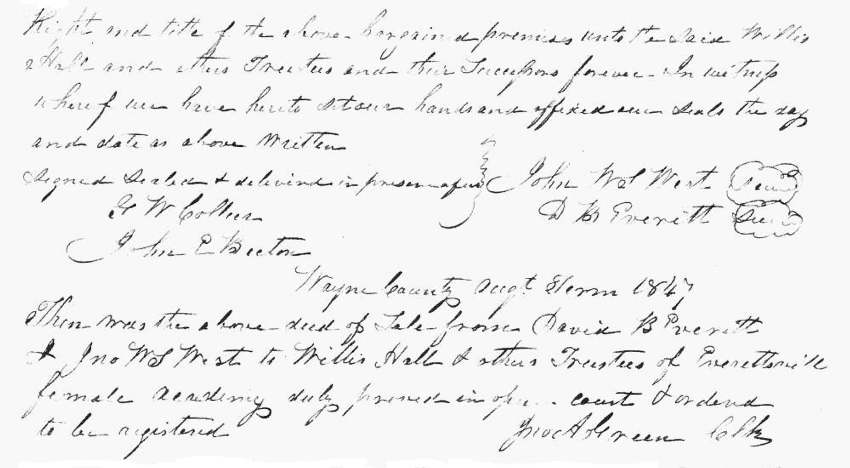 Right and title of the above bargained premises unto the said Willis
Hall and others Trustees and their Successors forever In witness
whereof we have hereto set our hands and affixed our Seals the day
and date as above Written
Signed Sealed & delivered in presence of us
John W S West Seal
G W Collier
D B Everett Seal
John E Becton
Wayne County Augt Term 1847
Then was the above deed of Sale from David B Everett
& Jno W S West to Willis Hall & others Trustees of Everettsville
female academy duly proved in open court & ordered
to be registered
Jno A Green Clk